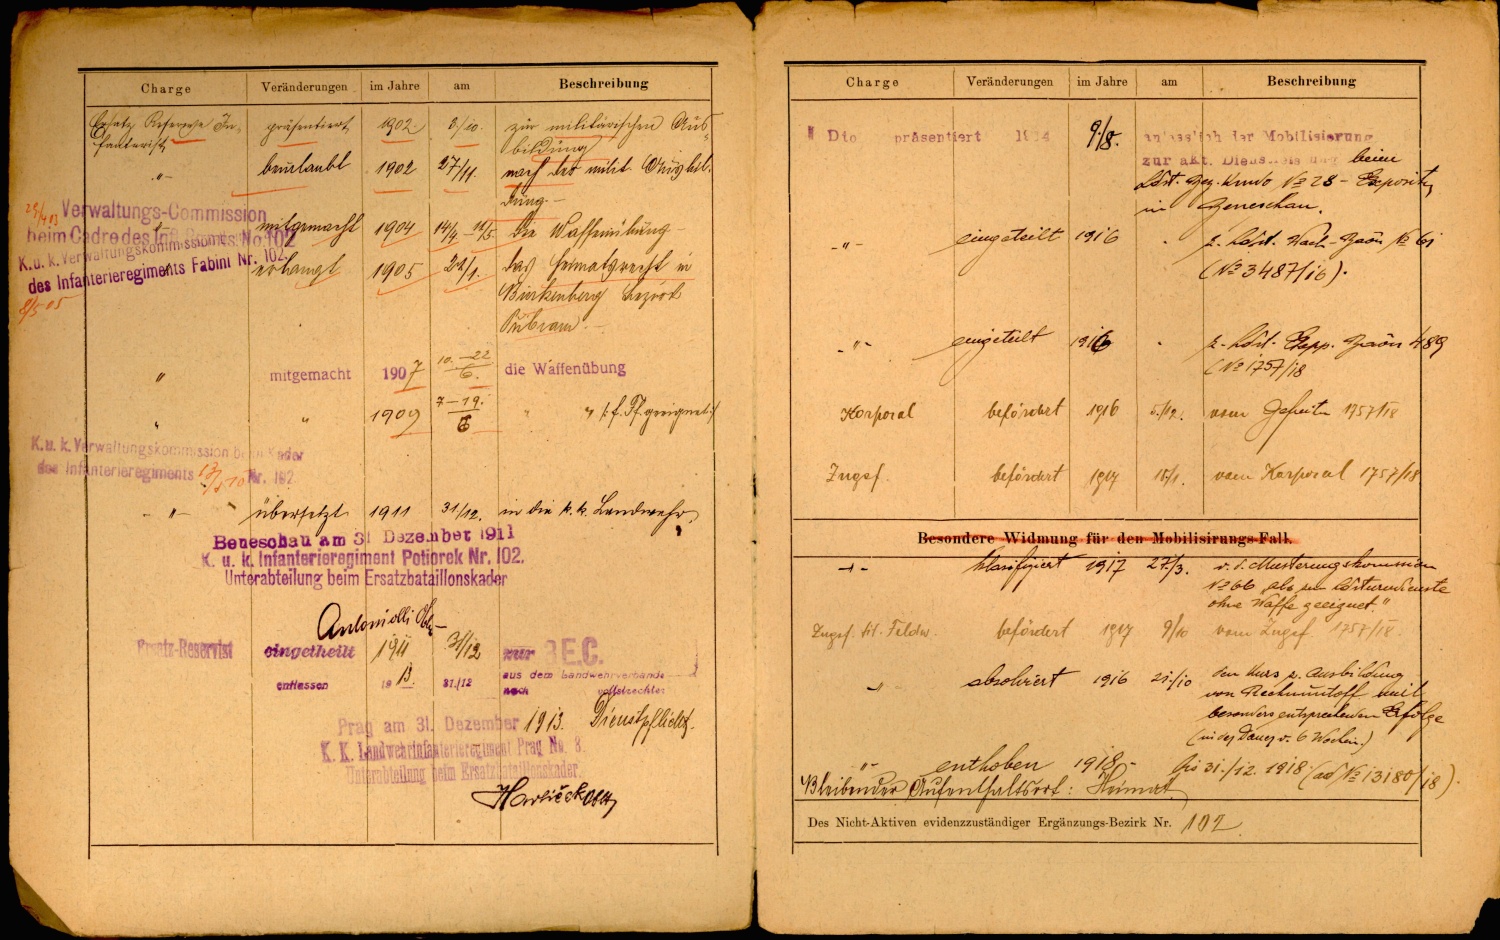 Charge Veränderungen im Jahre am Beschreibung
Ersatz Reserve In-
fanterist
präsentiert 1902 3/10. zur militärischen Aus-
bildung
-"- beurlaubt 1902 27/11. nach der milit. Ausbil-
dung.-
Verwaltungs-Commission
beim Cadre des Inft. Rgmts. No. 102
mitgemacht 1904 14/4 - 11/5. die Waffenübung
K. u. k. Verwaltungskommission
des Infanterieregiments Fabini Nr. 102.
8/5 05
erlangt 1905 22/1. das Heimatsrecht in
Birkenberg Bezirk
Pribram.-
" mitgemacht 1907 10.-22/6. die Waffenübung
" " 1909 7-19./6 " "
K. u. k. Verwaltungskommission beim Kader
des Infanterieregiments Nr. 102
-"- übersetzt 1911 31/12. in die k. k. Landwehr.
Beneschau am 31 Dezember 1911
K. u. k. Infanterieregiment Potiorek Nr. 102.
Unterabteilung beim Ersatzbataillonskader
Ersatz-Reservist eingetheilt 1911 31/12 zur E.C.
entlassen 1913. 31./12 aus dem Landwehrverbande
nach vollstreckter
Dienstpflicht.
Prag am 31. Dezember 1913.
K. K. Landwehrinfanterieregiment Prag No. 8.
Unterabteilung beim Ersatzbataillonskader.
Charge Veränderungen im Jahre am Beschreibung
präsentiert 1914 9/8. anlässlich der Mobilisierung
zur akt. Dienstleistung beim
Ldst. Bez. Kmdo No 28 - Expositur
in Beneschau.
-"- eingeteilt 1916 . z. Ldst. Wach-Baon No 61
(No 3487/16).
-"- eingeteilt 1916 . z. Ldst. Etapp. Baon 489
(No 1757/18
Korporal befördert 1916 5./12. vom Gefreiten 1757/18
Zugsf. befördert 1917 15/1. vom Korporal 1757/18
Besondere Widmung für den Mobilisirungs-Fall.
-"- klassifiziert 1917 27./3. v. d. Musterungskommission
No 66 als zum Ldsturmdienste
ohne Waffe geeignet."
Zugsf. tit. Feldw. befördert 1917 9/10 vom Zugsf. 1757/18.
-"- absolviert 1916 21./10 den Kurs z. Ausbildung
von Rechnuntoff mit
besonders entsprechendem Erfolge
(in der Dauer v. 6 Wochen.)
-"- enthoben 1918.- bis 31./12. 1918 (ad No 13180/18).
Bleibender Aufenthaltsort: Heimat
Des Nicht-Aktiven evidenzzuständiger Ergänzungs-Bezirk Nr. 102